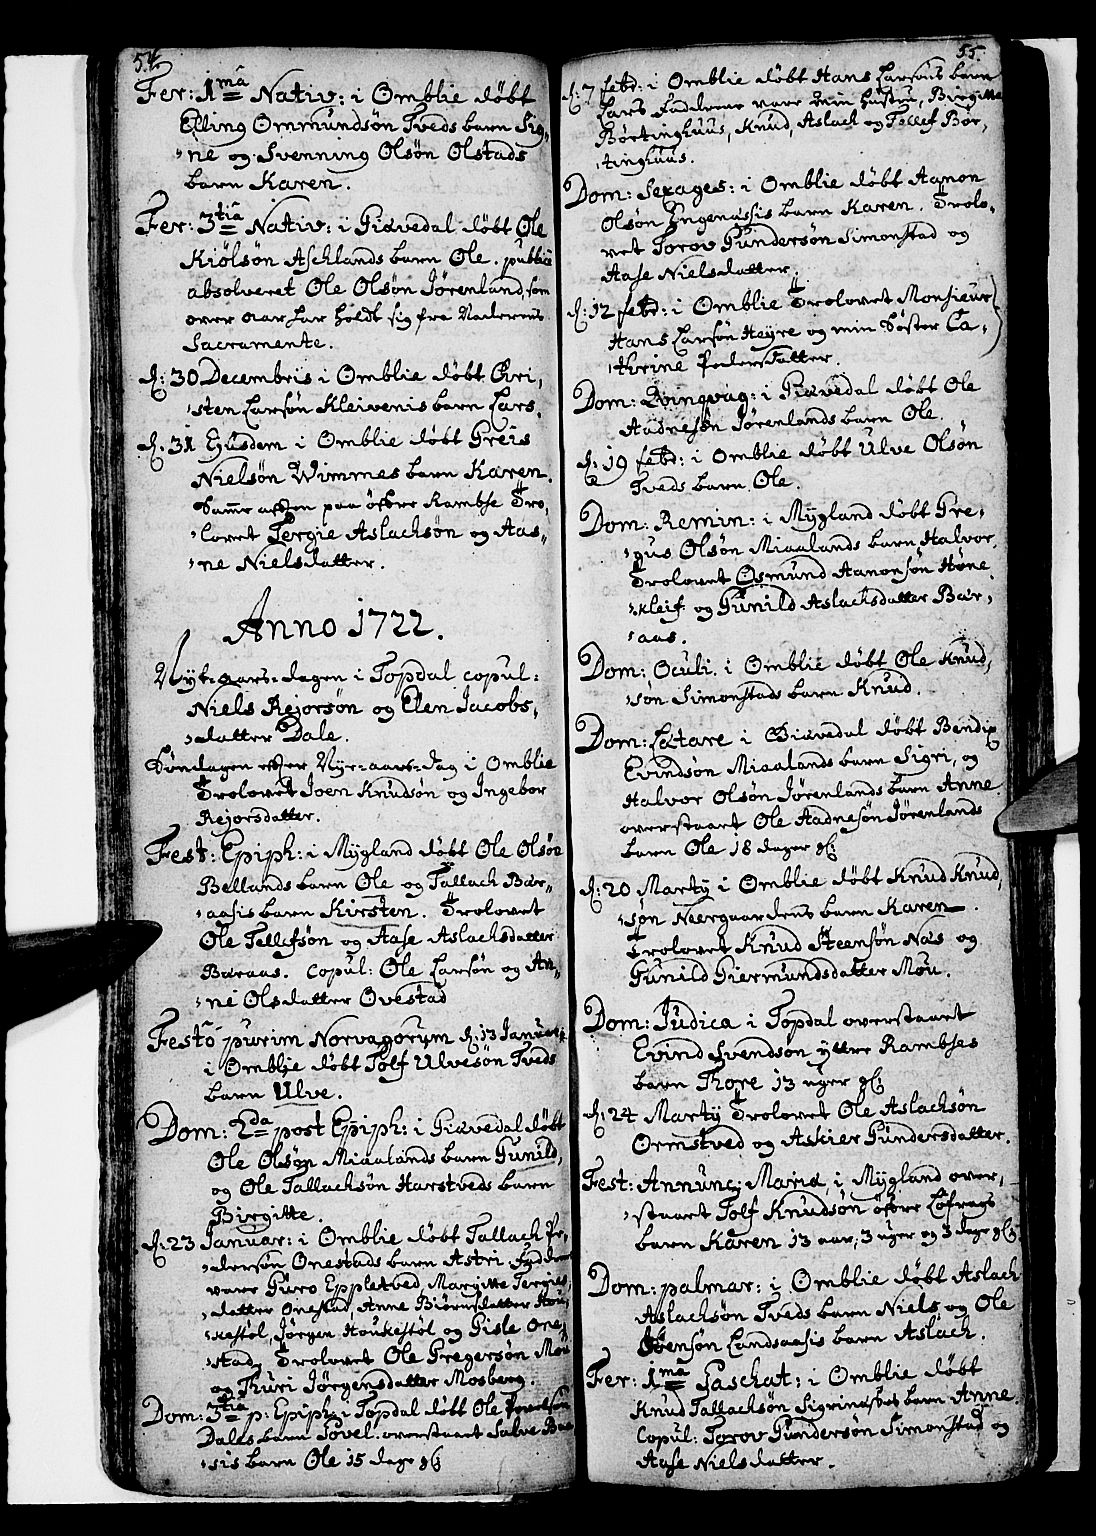 54.
Fer: 1mâ Nativ: i Omblie døbt
Elling Ommundsøn Tveds barn Sig-
-ne og Svenning Olsøn Olstads
barn Karen.
Fer: 3tia Nativ: i Giævedal døbt Ole
Kiølsøn Aschlands barn Ole. publicè
absolveret Ole Olsøn Jørenland, som
over aar har holdt sig fra Naderens
Sacramente.
d: 30 Decembris i Omblie døbt Chri-
-sten Larsøn Kleivenis barn Lars.
d: 31 Ejusdem i Omblie døbt Greis
Nielsøn Wimmes barn Karen.
Samme aften paa øfbre Rambse Tro-
-lovet Tergie Aslachsøn og Aas-
-ne Nielsdatter.
Anno 1722.
Nyt-aars-dagen i Topdal copul:
Niels Rejorsøn og Elen Jacobs-
-datter Dale.
Søndagen efter Nye-aars-dag i Omblie
Trolovet Joen Knudsøn og Ingebor
Rejorsdatter.
Fest: Epiph: i Mygland døbt Ole Olsøn
Bellands barn Ole og Tallach Bar-
-aasis barn Kirsten. Trolovet
Ole Tellefsøn og Aase Aslachsdatter
Baraas. Copul: Ole Larsøn og An-
-ne Olsdatter Ovestad
Festo purim Norvagorum d: 13 Januarii
i Omblie døbt Tolf Ulvesøn Tveds
barn Ulve.
Dom: 2da post Epiph: i Giævedal døbt
Ole Olsøn Miaalands barn Gunild,
og Ole Tallachsøn Harstveds barn
Birgitte.
d: 23 Januar: i Omblie døbt Tallach Pe-
-dersøn Onestads barn Astri Faddere
vare Guro Eppletved, Margitte Tergies
-datter Onestad, Anne Biørnsdatter Hou-
-kestøl, Jørgen Houkestøl og Gisle One-
-stad, Trolovet Ole Gregersøn Mou
og Thuri Jørgensdatter Mosberg.
Dom: 3tia p: Epiph: i Topdal døbt Ole
Dales barn Tovel. overstaaet Salve Baa
-sis barn Ole 15 dage gl:
55.
d: 7 febr: i Omblie døbt Hans Larsøns barn
Lars Faddere vare Min hustru, Birgitte
Børtinghuus, Knud, Aslach og Tellef Bør-
-tinghuus.
Dom: Sexages: i Omblie døbt Aanon
Olsøn Ingenaasis barn Karen. Trolo-
vet Torov Gundersøn Simonstad og
Aase Nielsdatter.
d: 12 febr: i Omblie Trolovet Monsieur
Hans Larsøn Høyre og min Søster Ca-
-thrine Pedersdatter.
Dom: Qvinqvag: i Giævedal døbt Ole
Aadnesøn Jørenlands barn Ole.
d: 19 febr: i Omblie døbt Ulve Olsøn
Tveds barn Ole.
Dom: Remin: i Mygland døbt Gre-
-gus Olsøn Miaalands barn Halvor.
Trolovet Osmund Aanonsøn Høne-
-kleif og Gunild Aslachsdatter Bar-
-aas.
Dom: Oculi. i Omblie døbt Ole Knud-
-søn Simonstads barn Knud.
Dom: Lætare i Giævedal døbt Bendix
Evindsøn Miaalands barn Sigri, og
Halvor Olsøn Jørenlands barn Anne
overstaaet Ole Aadnesøn Jørenlands
barn Ole 18 dager gl:
d: 20 Martij i Omblie døbt Knud Knud-
-søn Neergaardens barn Karen.
Trolovet Knud Steensøn Næs og
Gunild Giermundsdatter Mou.
Dom: Judica i Topdal overstaaet
Evind Svendsøn yttre Rambses
barn Thore 13 uger gl:
d: 24 Martij Trolovet Ole Aslachsøn
Ormstved og Askier Gundersdatter.
Fest: Annunc: Mariæ, i Mygland over-
-staaet Tolf Knudsøn øfbre Løfrags
barn Karen 13 aar, 3 uger og 3 dage gl:
Dom: palmar: i Omblie døbt Aslach
Aslachsøn Tveds barn Niels og Ole
Steensøn Landsaasis barn Aslach.
Fer: 1mâ Paschat: i Omblie døbt
Knud Tallachsøn barn Anne
Copul: Torov Gundersøn Simonstad og
Aase Nielsdatter.